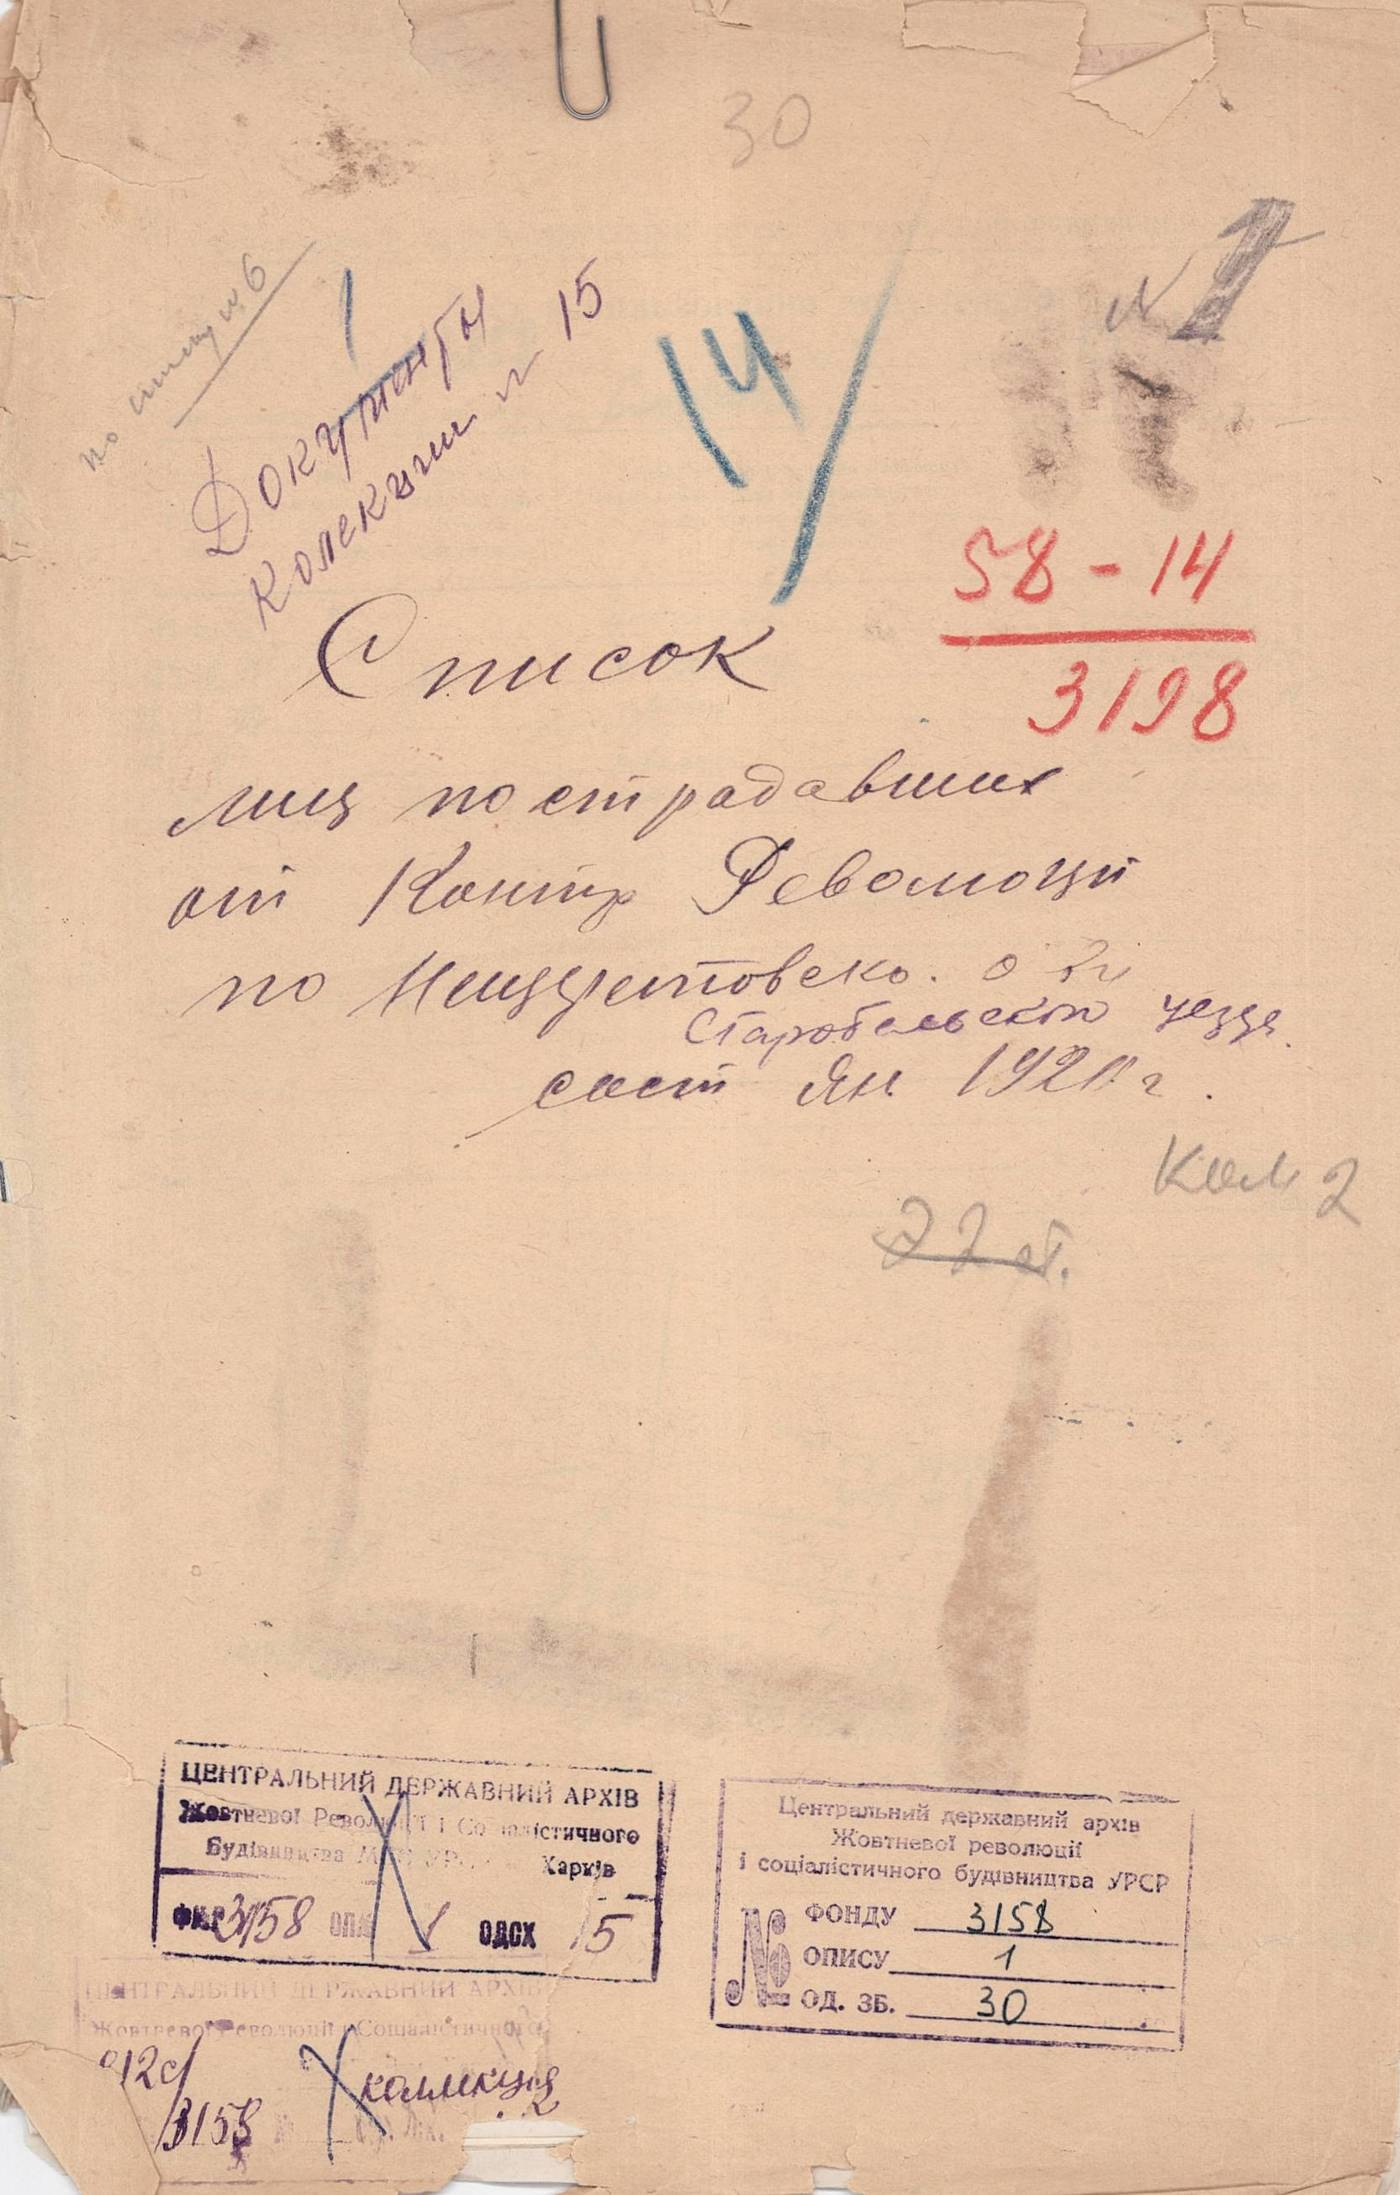 30
по опису № 6
1
Документы
Колекции № 15
14
№ 1
58-14
3198
Список
лиц пострадавших
от Контр Революци
по
Старобельского уезда.
сост Ян 1921 г.
Кол 2
22 ст.
ЦЕНТРАЛЬНИЙ ДЕРЖАВНИЙ АРХІВ
Жовтневої Революції і Соціалістичного
Будівництва УРСР Харків
3158 ОПИС 1 ОДСХ 15
Центральний державний архів
Жовтневої революції
і соціалістичного будівництва УРСР
№ ФОНДУ 3158
ОПИСУ 1
ОД. ЗБ. 30
ЦЕНТРАЛЬНИЙ ДЕРЖАВНИЙ АРХІВ
Жовтневої Революції і Соціалістичного
12с/
3158
коллекция
2